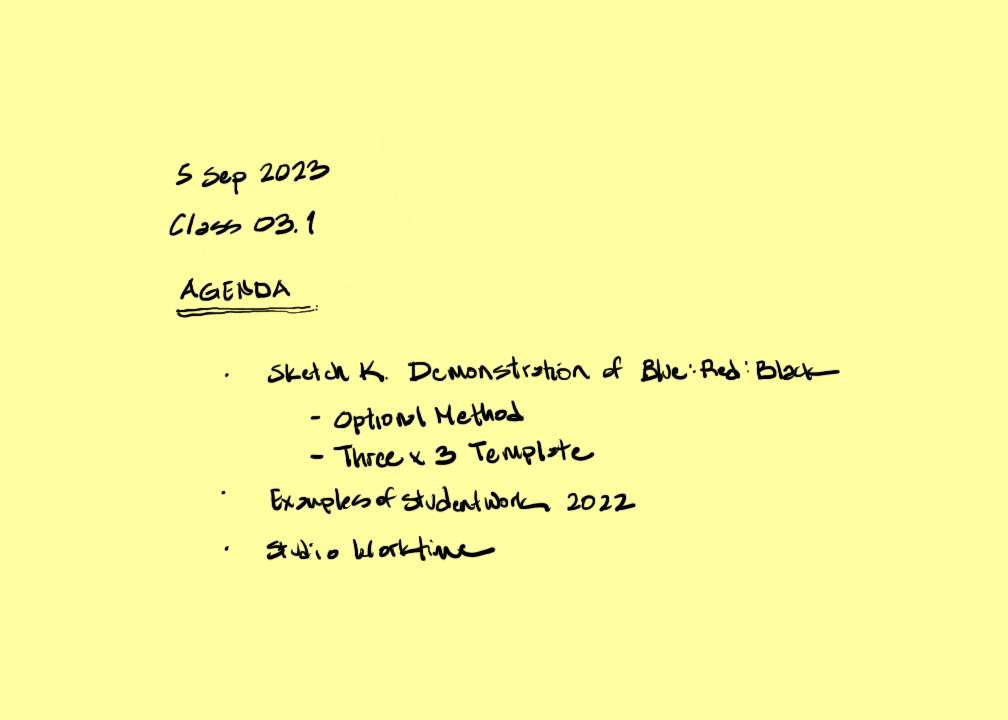 5 Sep 2023
Class 03.1
AGENDA
· Sketch K. Demonstration of Blue:Red:Black
- Optional Method
- Three x 3 Template
· Examples of Student Work 2022
· Studio Worktime